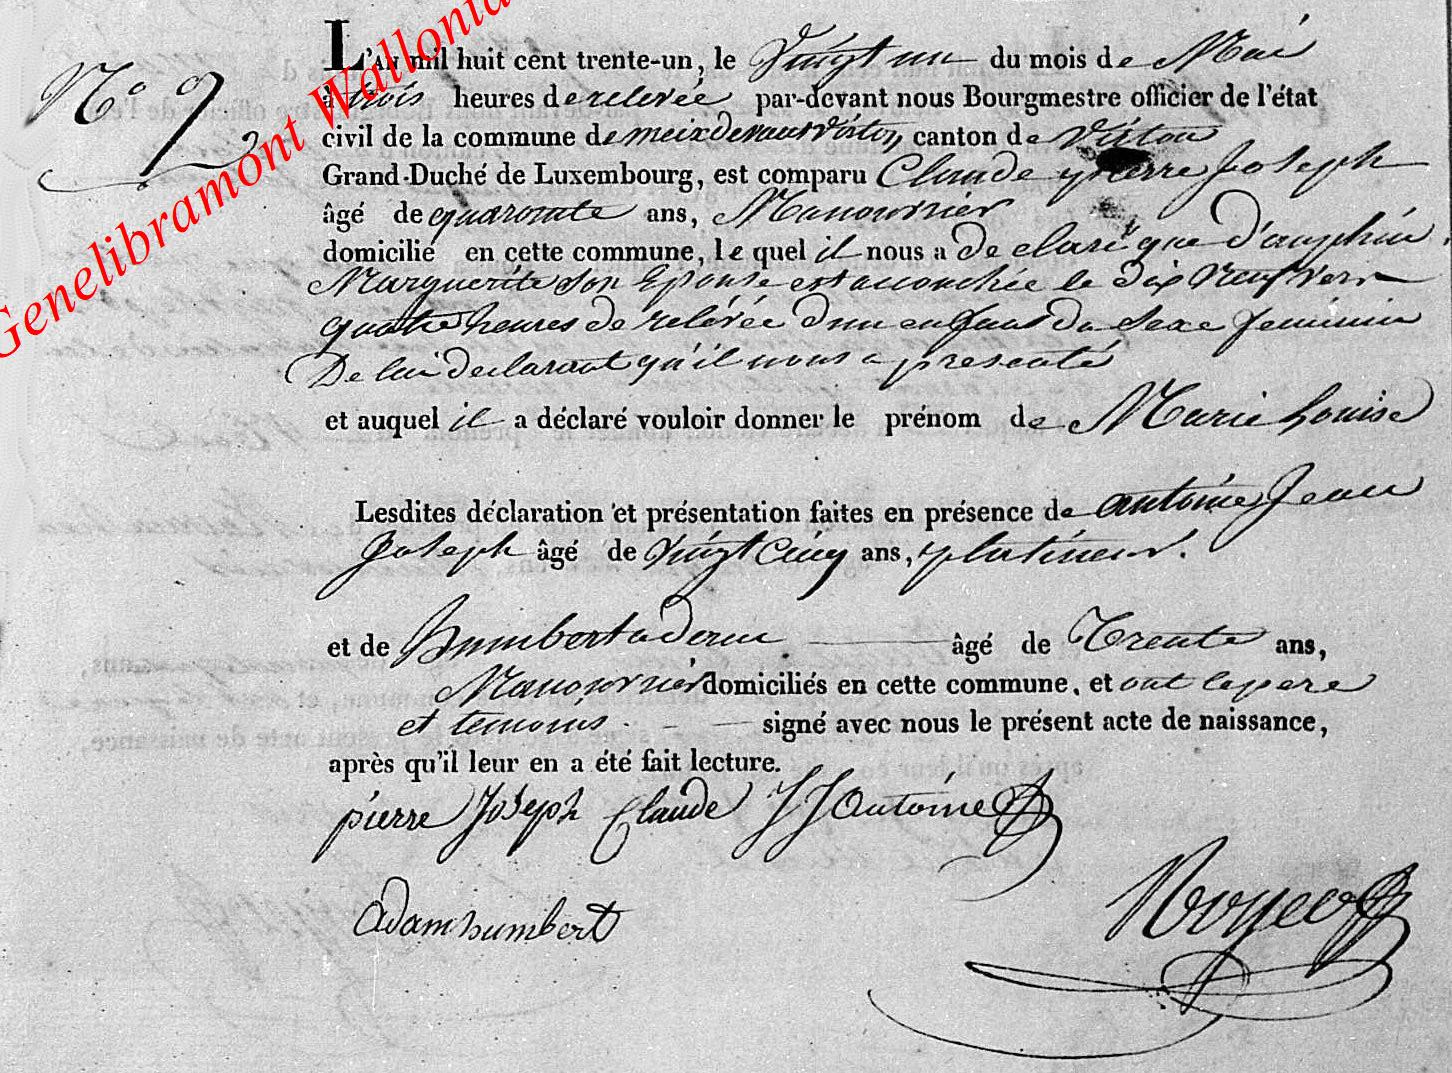 Genelibramont Wallonia
N° 9
L'AN mil huit cent trente-un, le vingt un du mois de Mai
à trois heures de relevée par-devant nous Bourgmestre officier de l'état
civil de la commune de meix devant virton, canton de Virton
Grand-Duché de Luxembourg, est comparu Claude pierre Joseph
âgé de quarante ans, Manouvrier
domicilié en cette commune, le quel il nous a declaré que d'auphin
Marguerite son Epouse est accouchée le dix neuf vers
quatre heures de relevée d'un enfant du sexe feminin
De lui declarant qu'il nous a presenté
et auquel il a déclaré vouloir donner le prénom de Marie Louise
Lesdites déclaration et présentation faites en présence de antoine Jean
Joseph âgé de vingt cinq ans, platineur.
et de humbert adam âgé de Trente ans,
Manouvrier domiciliés en cette commune, et ont le pere
et temoins signé avec nous le présent acte de naissance,
après qu'il leur en a été fait lecture.
pierre Joseph Claude J J antoine
adam humbert